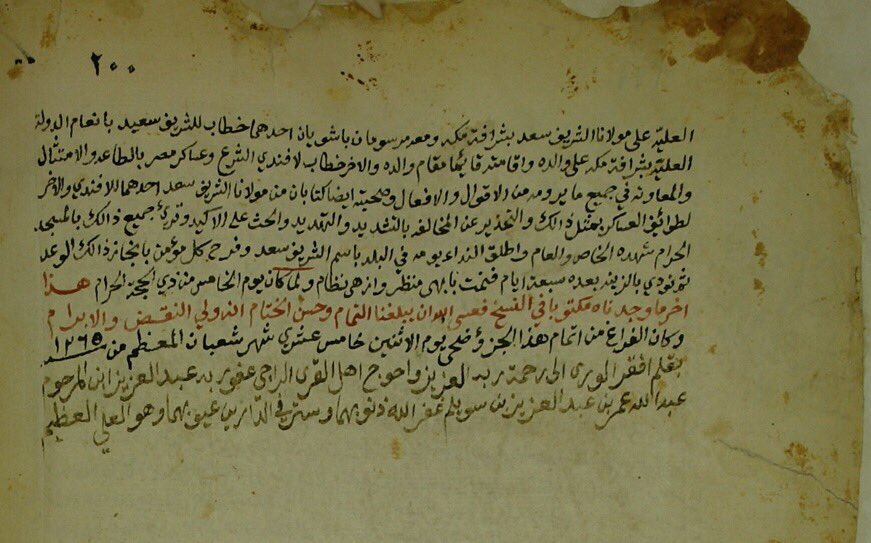 ٢٠٠
العلية على مولانا الشريف سعد بشرافة مكة ومعه مرسومان باشويان احدهما خطاب للشريف سعيد بانعام الدولة
العلية بشرافة مكة على والده واقامته قايما مقام والده والاخر خطاب لافندي الشرع وعساكر مصر بالطاعة والامتثال
والمعاونة في جميع ما يرومه من الاقوال والافعال وصحبته ايضا كتابان من مولانا الشريف سعد احدهما للافندي والاخر
لطوائف العساكر بمثل ذالك والتحذير عن المخالفه بالتشديد والتهديد والحث على الاكيد وقرئ جميع ذالك بالمسجد
الحرام شهده الخاص والعام واطلق النداء يومه في البلد باسم الشريف سعد وفرح كل مؤمن بانجاز ذالك الوعد
ثم نودي بالزينه بعده سبعة ايام فتمت بابهى منظر وازهى نظام ولما كان يوم الخامس من ذي الحجة الحرام هذا
اخر ما وجدناه مكتوبا في النسخ فعسى الله ان يبلغنا التمام وحسن الختام الذولي النقض والابرام
وكان الفراغ من اتمام هذا الجزؤ ضحى يوم الاثنين خامس عشري شهر شعبان المعظم من سنة ١٢٦٥
بقلم افقر الورى الى رحمة ربه العزيز واحوج اهل القرى الراجي عفو ربه عبد العزيز ابن المرحوم
عبد الله عمر بن عبد العزيز بن سويلم غفر الله ذنوبهما وستر في الدارين عيوبهما وهو العلي العظيم